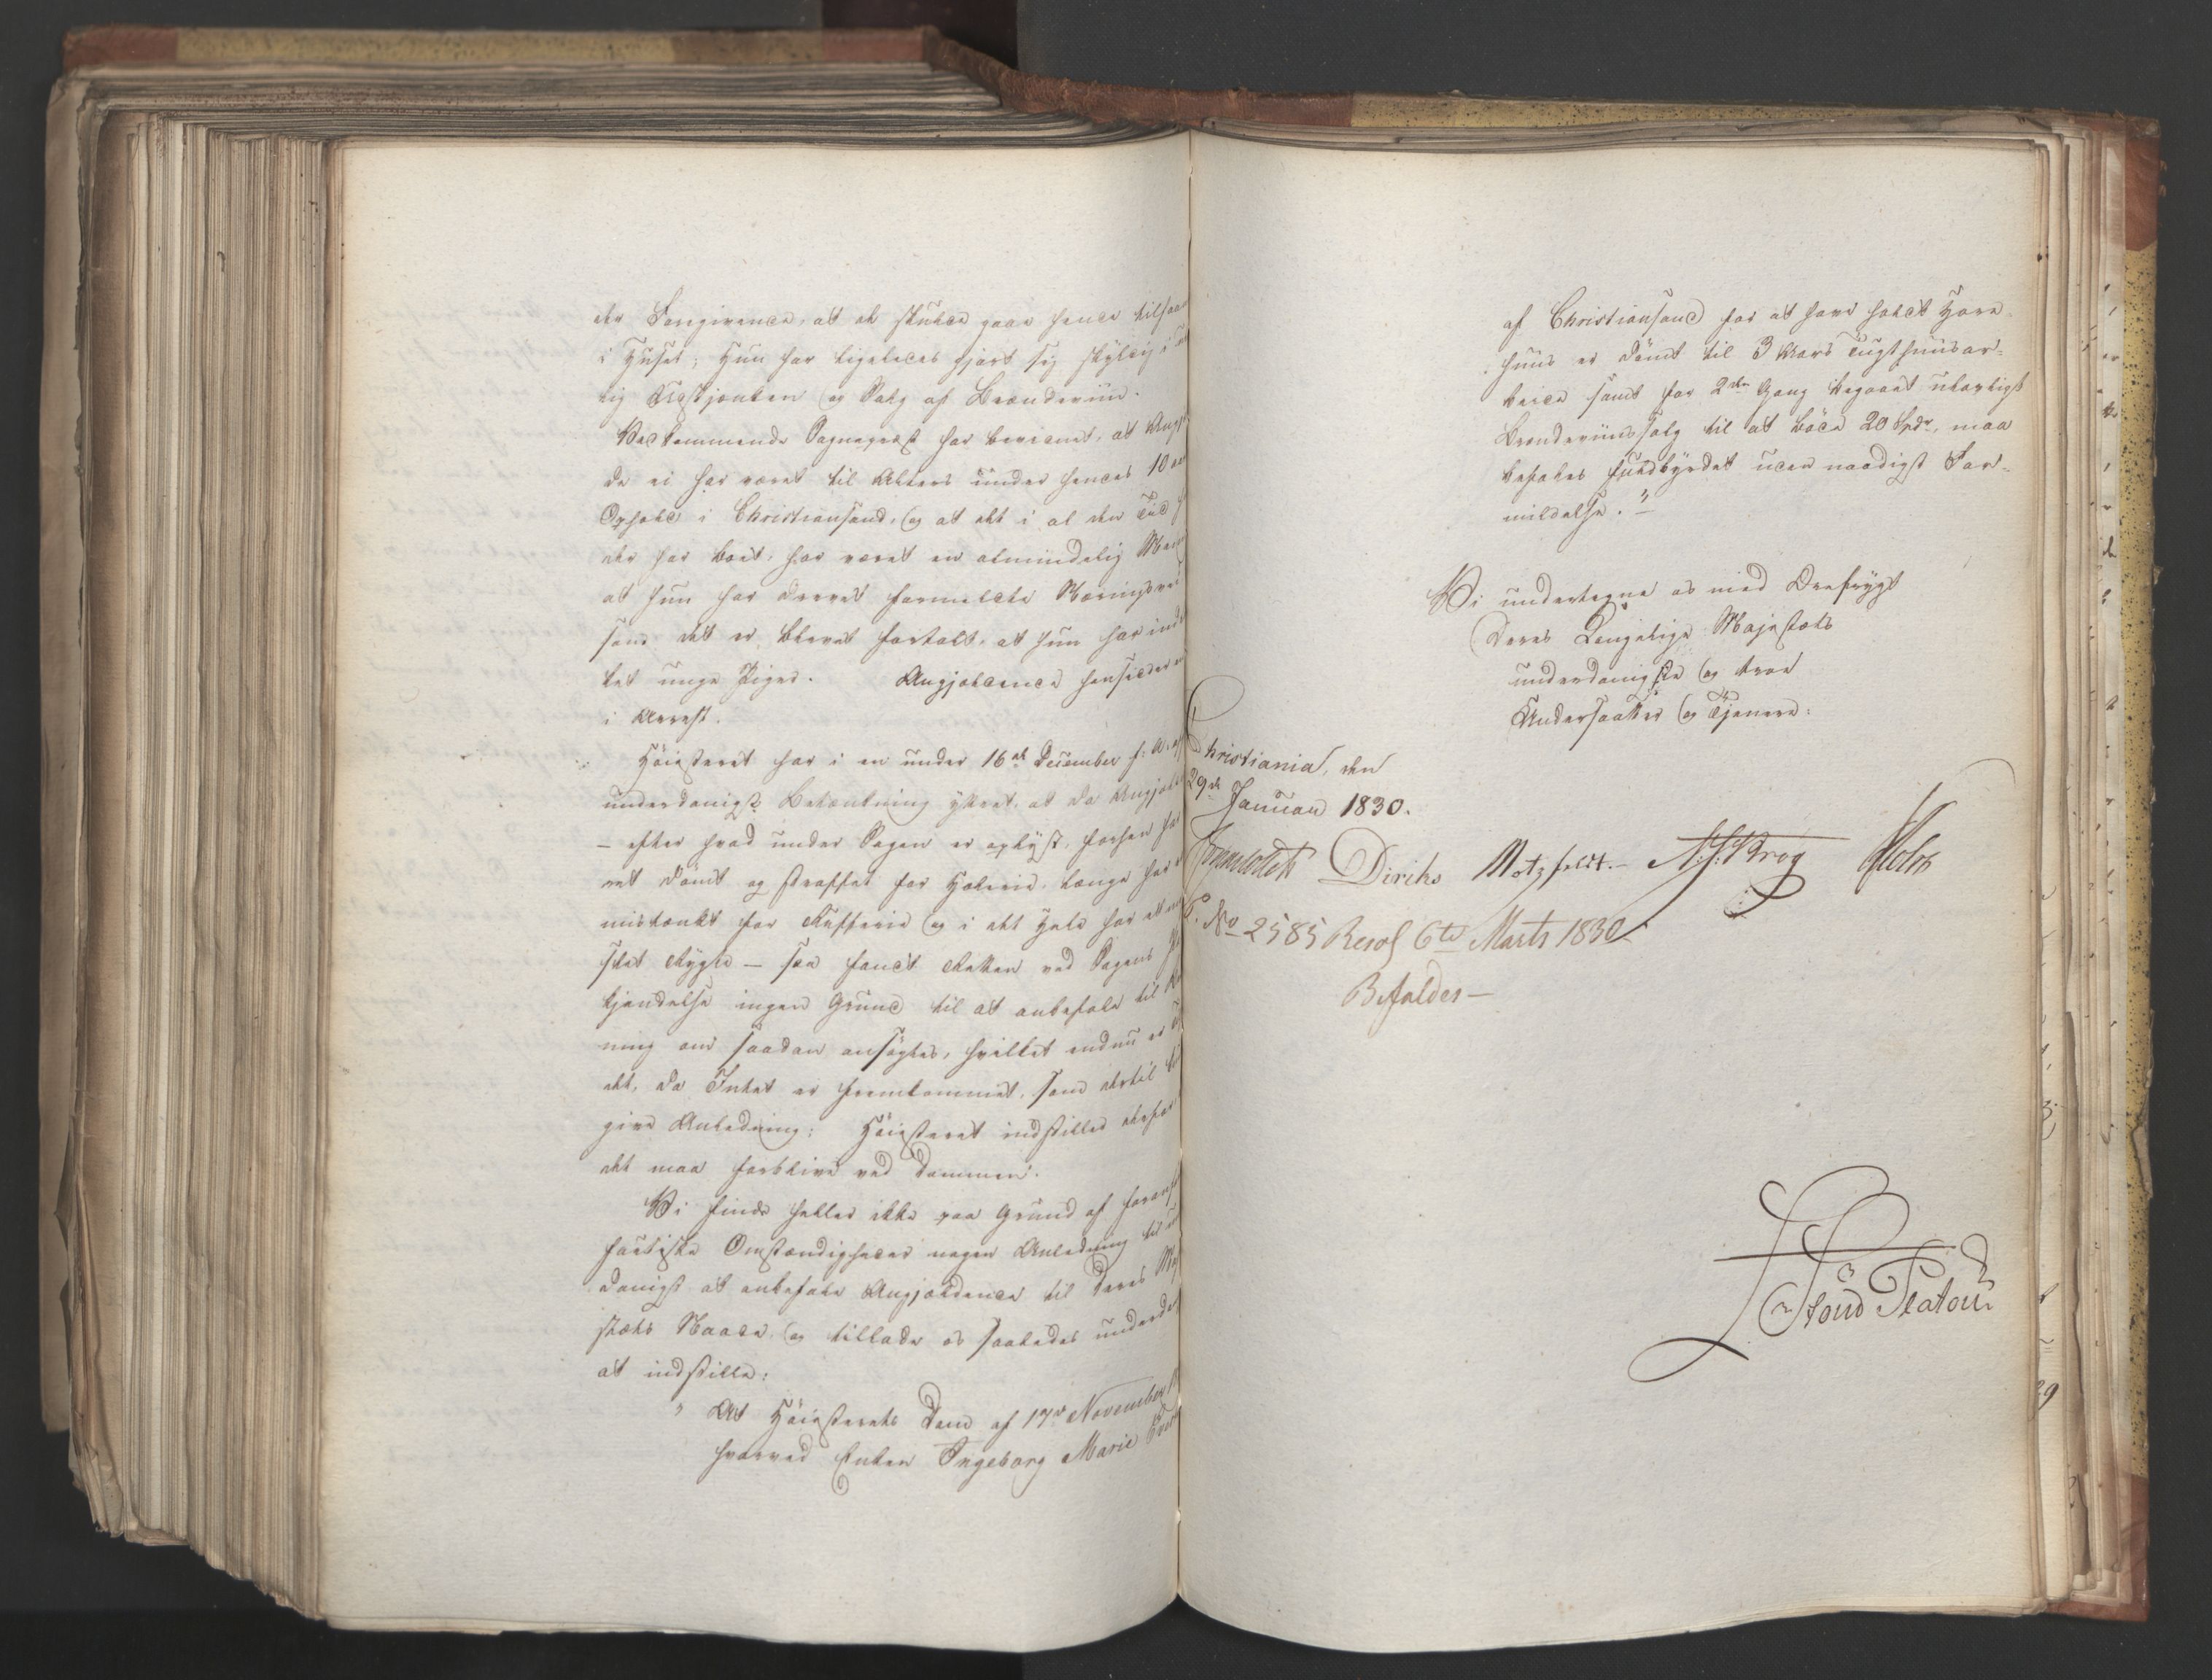 det Foregivende, at de skulde gaae hende tilhaande
i Huset; Hun har ligeledes gjort sig skyldig i
lig Udskjænken og Salg af Brændeviin.
Vedkommende Sognepræst har bevidnet, at Angjæl
de ei har været til Alters under hendes 10
Ophold i Christiansand, og at det i al den Tid
der har boet, har været en almindelig
at hun har drevet formeldte Næringsvei
som det er blevet fortalt, at hun har
unge Piger. Angjældende hensidder
i Arrest.
Höiesteret har i en under 16de December f: A.
underdanigst Betænkning yttret, at da Angjæl
– efter hvad under Sagen er oplyst, forhen har
ret dömt og straffet for Hæleri, længe har
mistænkt for Rufferie og i det Hele har
slet Rygte – saa fandt Retten ved Sagens
kjendelse ingen Grund til at anbefale til
ning om saadan ansögtes, hvilket endnu er
det, da Intet er fremkommet, som dertil
give Anledning; Höiesteret indstiller derfor
det maa forblive ved Dommen.
Vi finde heller ikke paa Grund af
factiske Omstændigheder nogen Anledning til
danigst at anbefale Angjældende til Deres
stæts Naade, og tillade os saaledes underda
at indstille:
" At Höiesterets Dom af 17de November
hvorved Enken Ingeborg Marie
af Christiansand for at have holdt Hore-
huus er dömt til 3 Aars Tugthuusar-
beide samt for 2den Gang begaaet ulovligt
Brændeviinssalg til at böde 20 Spdr, maa
befales fuldbyrdet uden naadigst For-
mildelse."
Vi undertegne os med Ærefrygt
Deres Kongelige Majestæts
underdanigste og troe
Undersaatter og Tjenere:
Christiania, den
29de Januar 1830.
Diriks Motzfeldt. – Holst
S. No 2585 Resol 6te Marts 1830
Bifaldes –
Platou